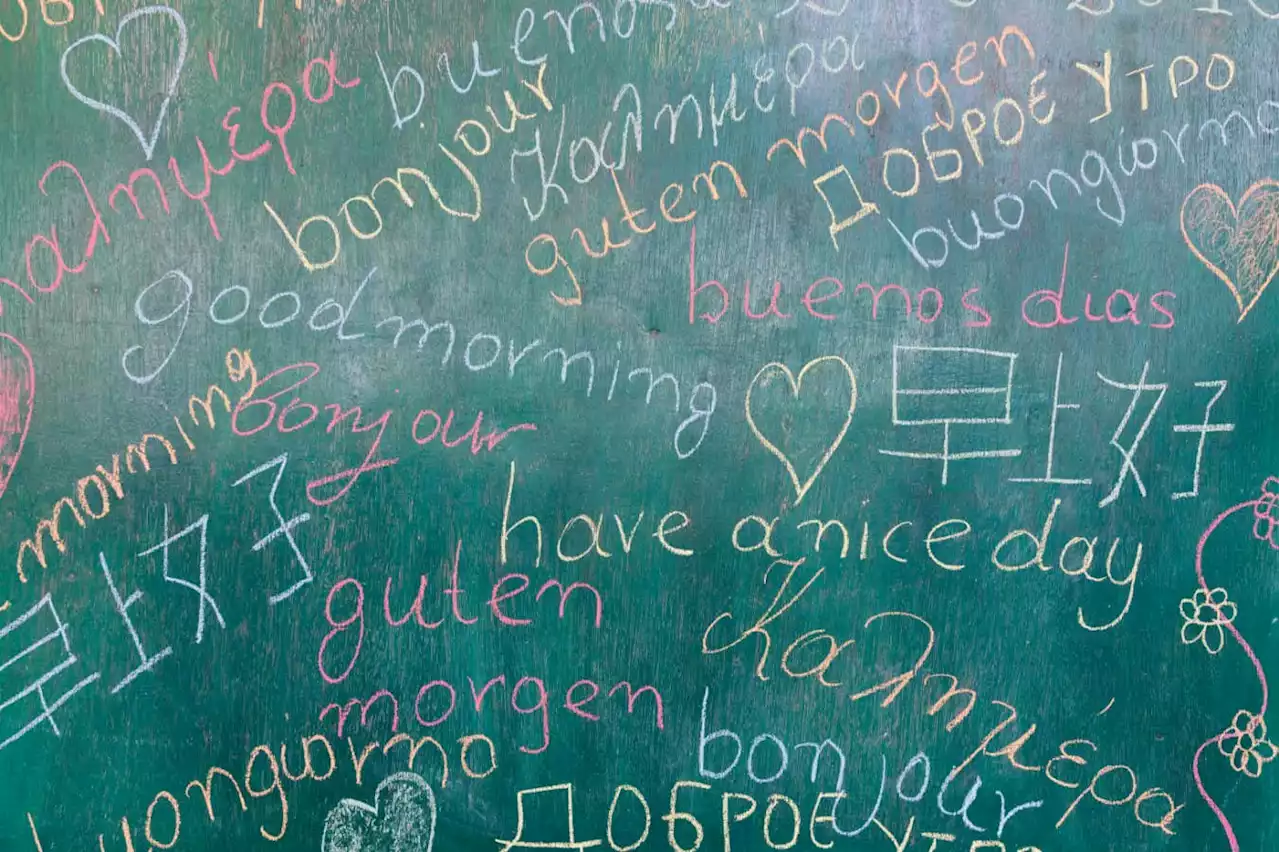 buenos
Καλημέρα
bonjour
Καλημέρα
guten morgen
ДОБРОЕ УТРО
buongiorno
good morning
buenos dias
morning
Bonjour
早上好
早上好
have a nice day
guten
morgen
Καλημέρα
buongiorno
bonjour
ДОБРОЕ УТРО